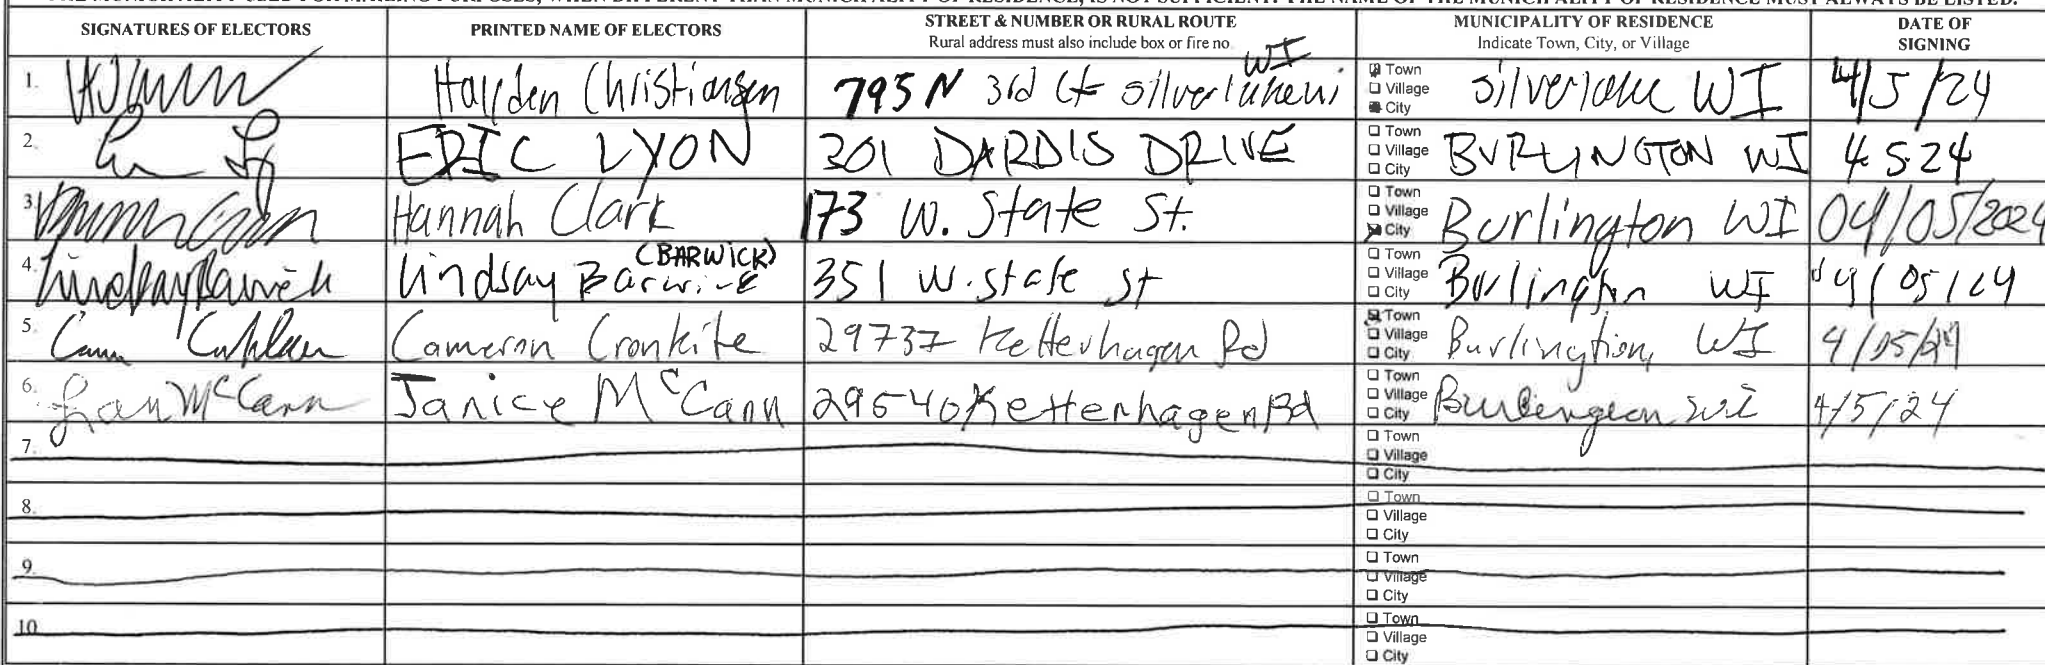 SIGNATURES OF ELECTORS PRINTED NAME OF ELECTORS STREET & NUMBER OR RURAL ROUTE MUNICIPALITY OF RESIDENCE DATE OF
Rural address must also include box or fire no. Indicate Town, City, or Village SIGNING
WI
1. Hayden Christiansen 795 N 3rd Ct silverlake wi Town Village City silverlake WI 4/5/24
2. ERIC LYON 301 DARDIS DRIVE Town Village City BURLINGTON WI 4 5 24
3. Hannah Clark 173 W. State St. Town Village City Burlington WI 04/05/2024
(BARWICK)
4. Lindsay Barwick Lindsay Barwick 351 W. State St Town Village City Burlington WI 04/05/24
5. Cameron Cronkite 29737 Ketterhagen Rd Town Village City Burlington, WI 4/05/24
6. Jan McCann Janice McCann 29540 Ketterhagen Rd Town Village City Burlington Wi 4/5/24
7. Town Village City
8. Town Village City
9. Town Village City
10. Town Village City